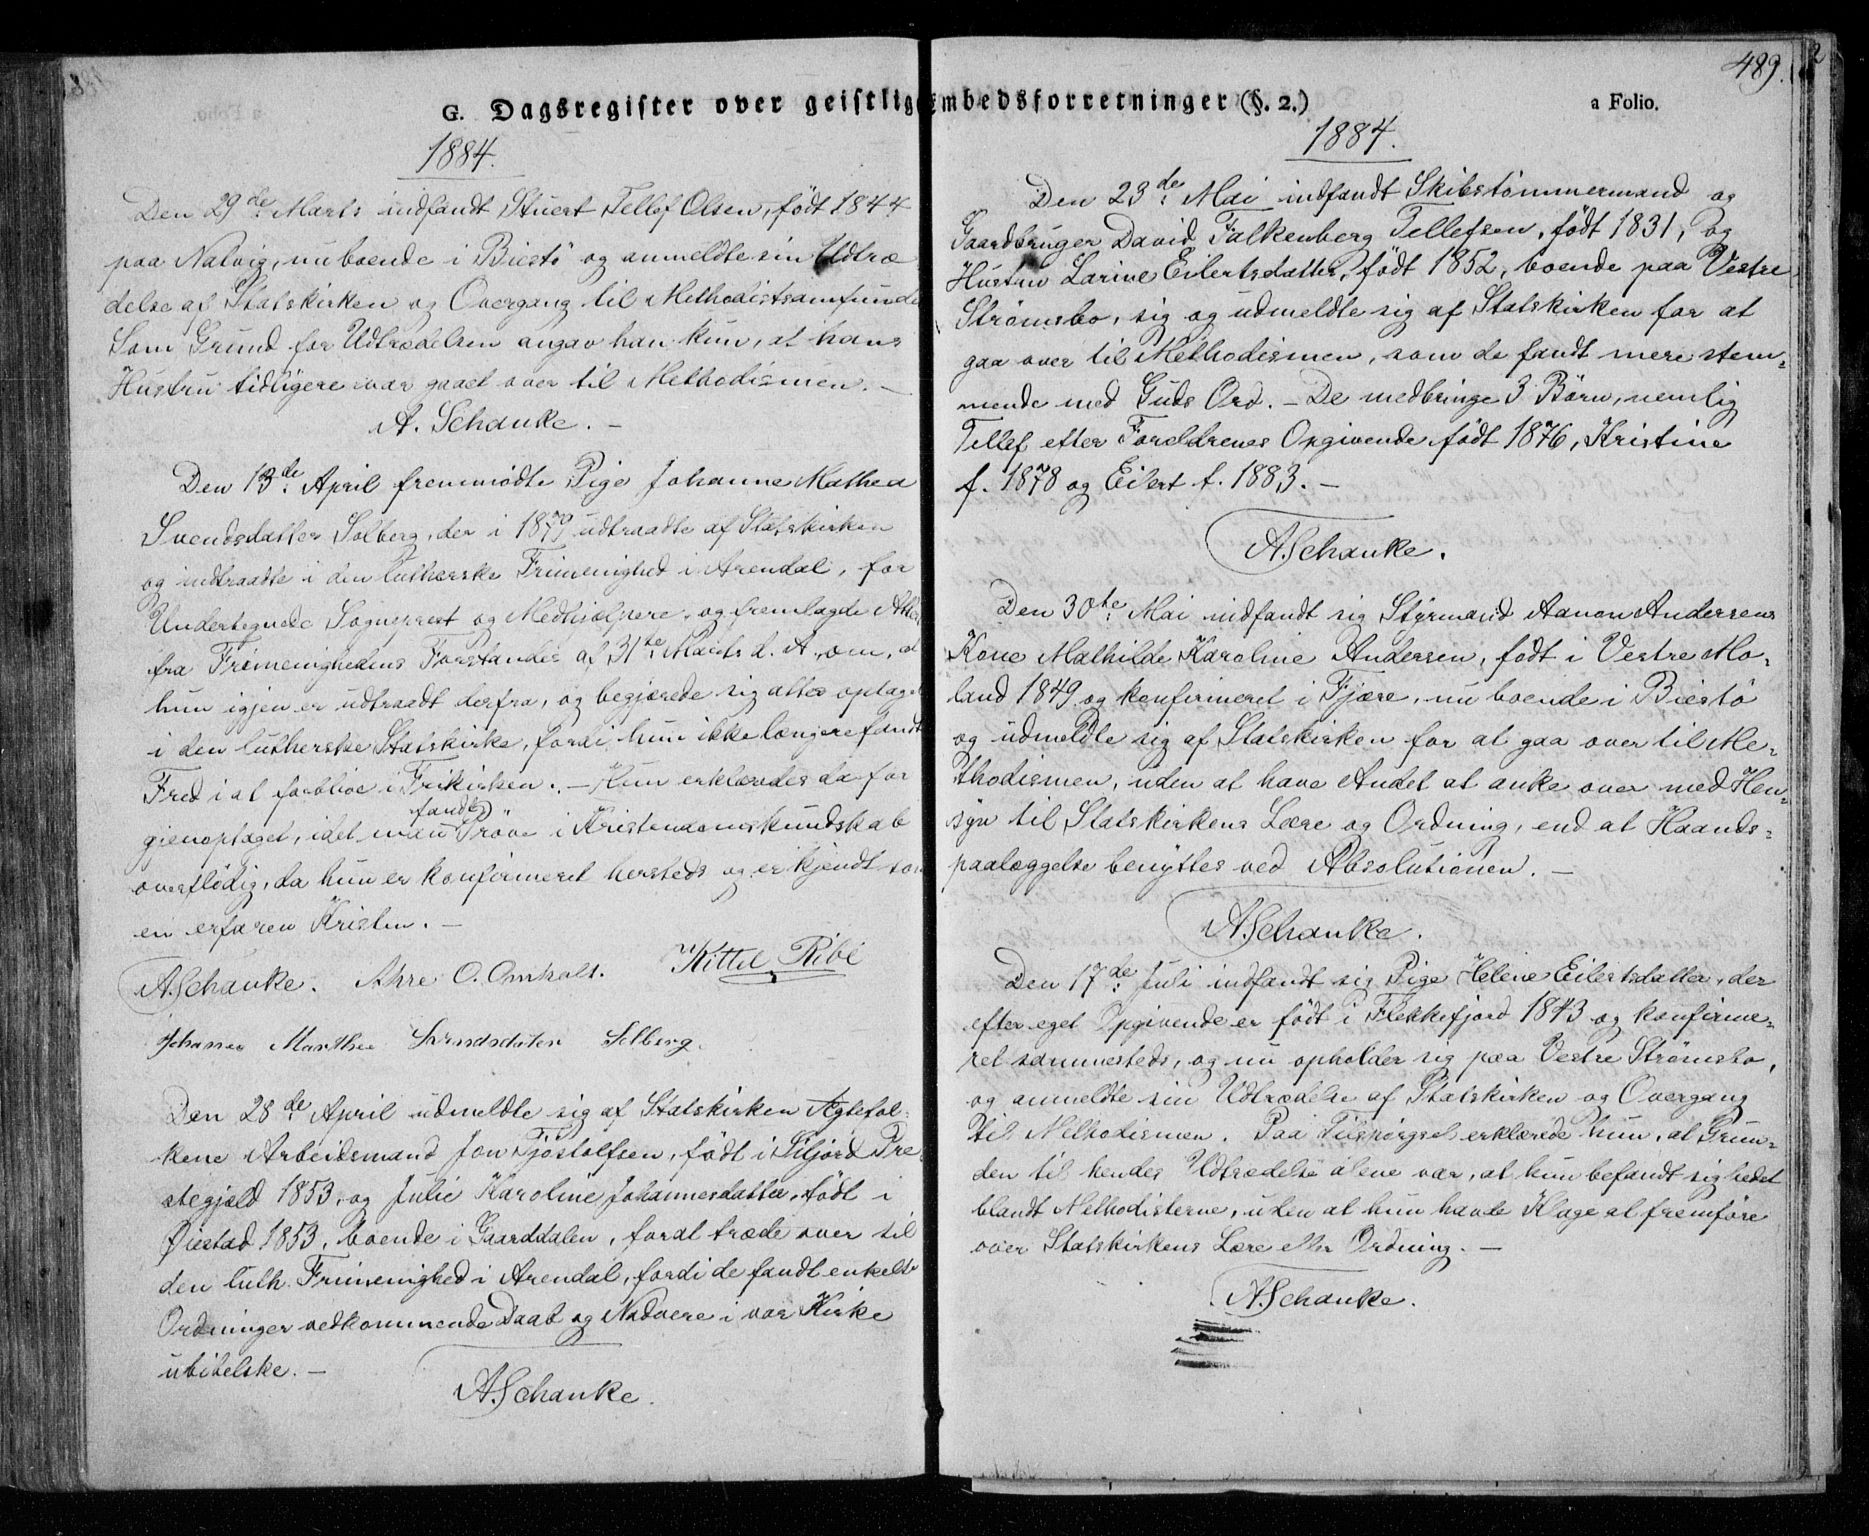 G. Dagsregister over geistlig Embedsforretninger (§. 2.)
1884.
Den 29de Marts indfandt Stuert Tellef Olsen, født 1844
paa Natvig, nu boende i Biestö og anmeldte sin Udtræ
delse af Statskirken og Overgang til Methodistsamfunde
Som Grund for Udtrædelsen angav han kun, at hans
Hustru tidligere var gaaet over til Methodismen. –
A. Schanke. –
Den 13de April fremmødte Pige Johanne Mathea
Svendsdatter Solberg, der i 1879 udtraadte af Statskirken
og indtraadte i den lutherske Frimenighed i Arendal, for
Undertegnede Sogneprest og Medhjælpere, og fremlagde Atte
fra Frimenighedens Forstander af 31te Marts d. A. om, at
hun igjen er udtraadt derfra, og begjærede sig atter optaget
i den lutherske Statskirke, fordi hun ikke længere fandt
Fred i at forblive i Frikirken. – Hun erklæredes da for
gjenoptaget, idet man fandt Prøve i Kristendomskundskab
overflødig, da hun er konfirmeret hersteds og er kjendt som
en erfaren Kristen. –
A. Schanke. Ahre O. Omholt. Kittil Ribe
Johanne Marthea Svendsdater Solberg.
Den 28de April udmeldte sig af Statskirken Ægtefol-
kene Arbeidsmand Jon Tjøstolfsen, født i Siljord Præ-
stegjæld 1853, og Julie Karoline Johannesdatter, født i
Øiestad 1853, boende i Gaarddalen, for at træde over til
den luth. Frimenighed i Arendal, fordi de fandt enkelte
Ordninger vedkommende Daab og Nadvere i vor Kirke
ubibelske. –
A. Schanke.
489.
a Folio.
1884.
Den 23de Mai indfandt Skibstømmermand og
Gaardbruger David Falkenberg Tellefsen, født 1831, og
Hustru Larine Eilertsdatter, født 1852, boende paa Vestre
Strømsbo, sig og udmeldte sig af Statskirken for at
gaa over til Methodismen, som de fandt mere stem-
mende med Guds Ord. – De medbringe 3 Børn, nemlig
Tellef efter Forældrenes Opgivende født 1876, Kristine
f. 1878 og Eilert f. 1883. –
A. Schanke.
Den 30te Mai indfandt sig Styrmand Aanon Andersens
Kone Mathilde Karoline Andersen, født i Vestre Mo-
land 1849 og konfirmeret i Fjære, nu boende i Biestö
og udmeldte sig af Statskirken for at gaa over til Me-
thodismen, uden at have Andet at anke over med Hen-
syn til Statskirkens Lære og Ordning, end at Haands-
paalæggelse benyttes ved Absolutionen. –
A. Schanke.
Den 17de Juli indfandt sig Pige Helene Eilertsdatter, der
efter eget Opgivende er født i Flekkefjord 1843 og konfirme-
ret sammesteds, og nu opholder sig paa Vestre Strømsbo,
og anmeldte sin Udtrædelse af Statskirken og Overgang
til Methodismen. Paa Tilspørgsel erklærede hun, at Grun-
den til hendes Udtrædelse alene var, at hun befandt sig bedst
blandt Methodisterne, uden at hun havde Klage at fremføre
over Statskirkens Lære eller Ordning. –
A. Schanke.